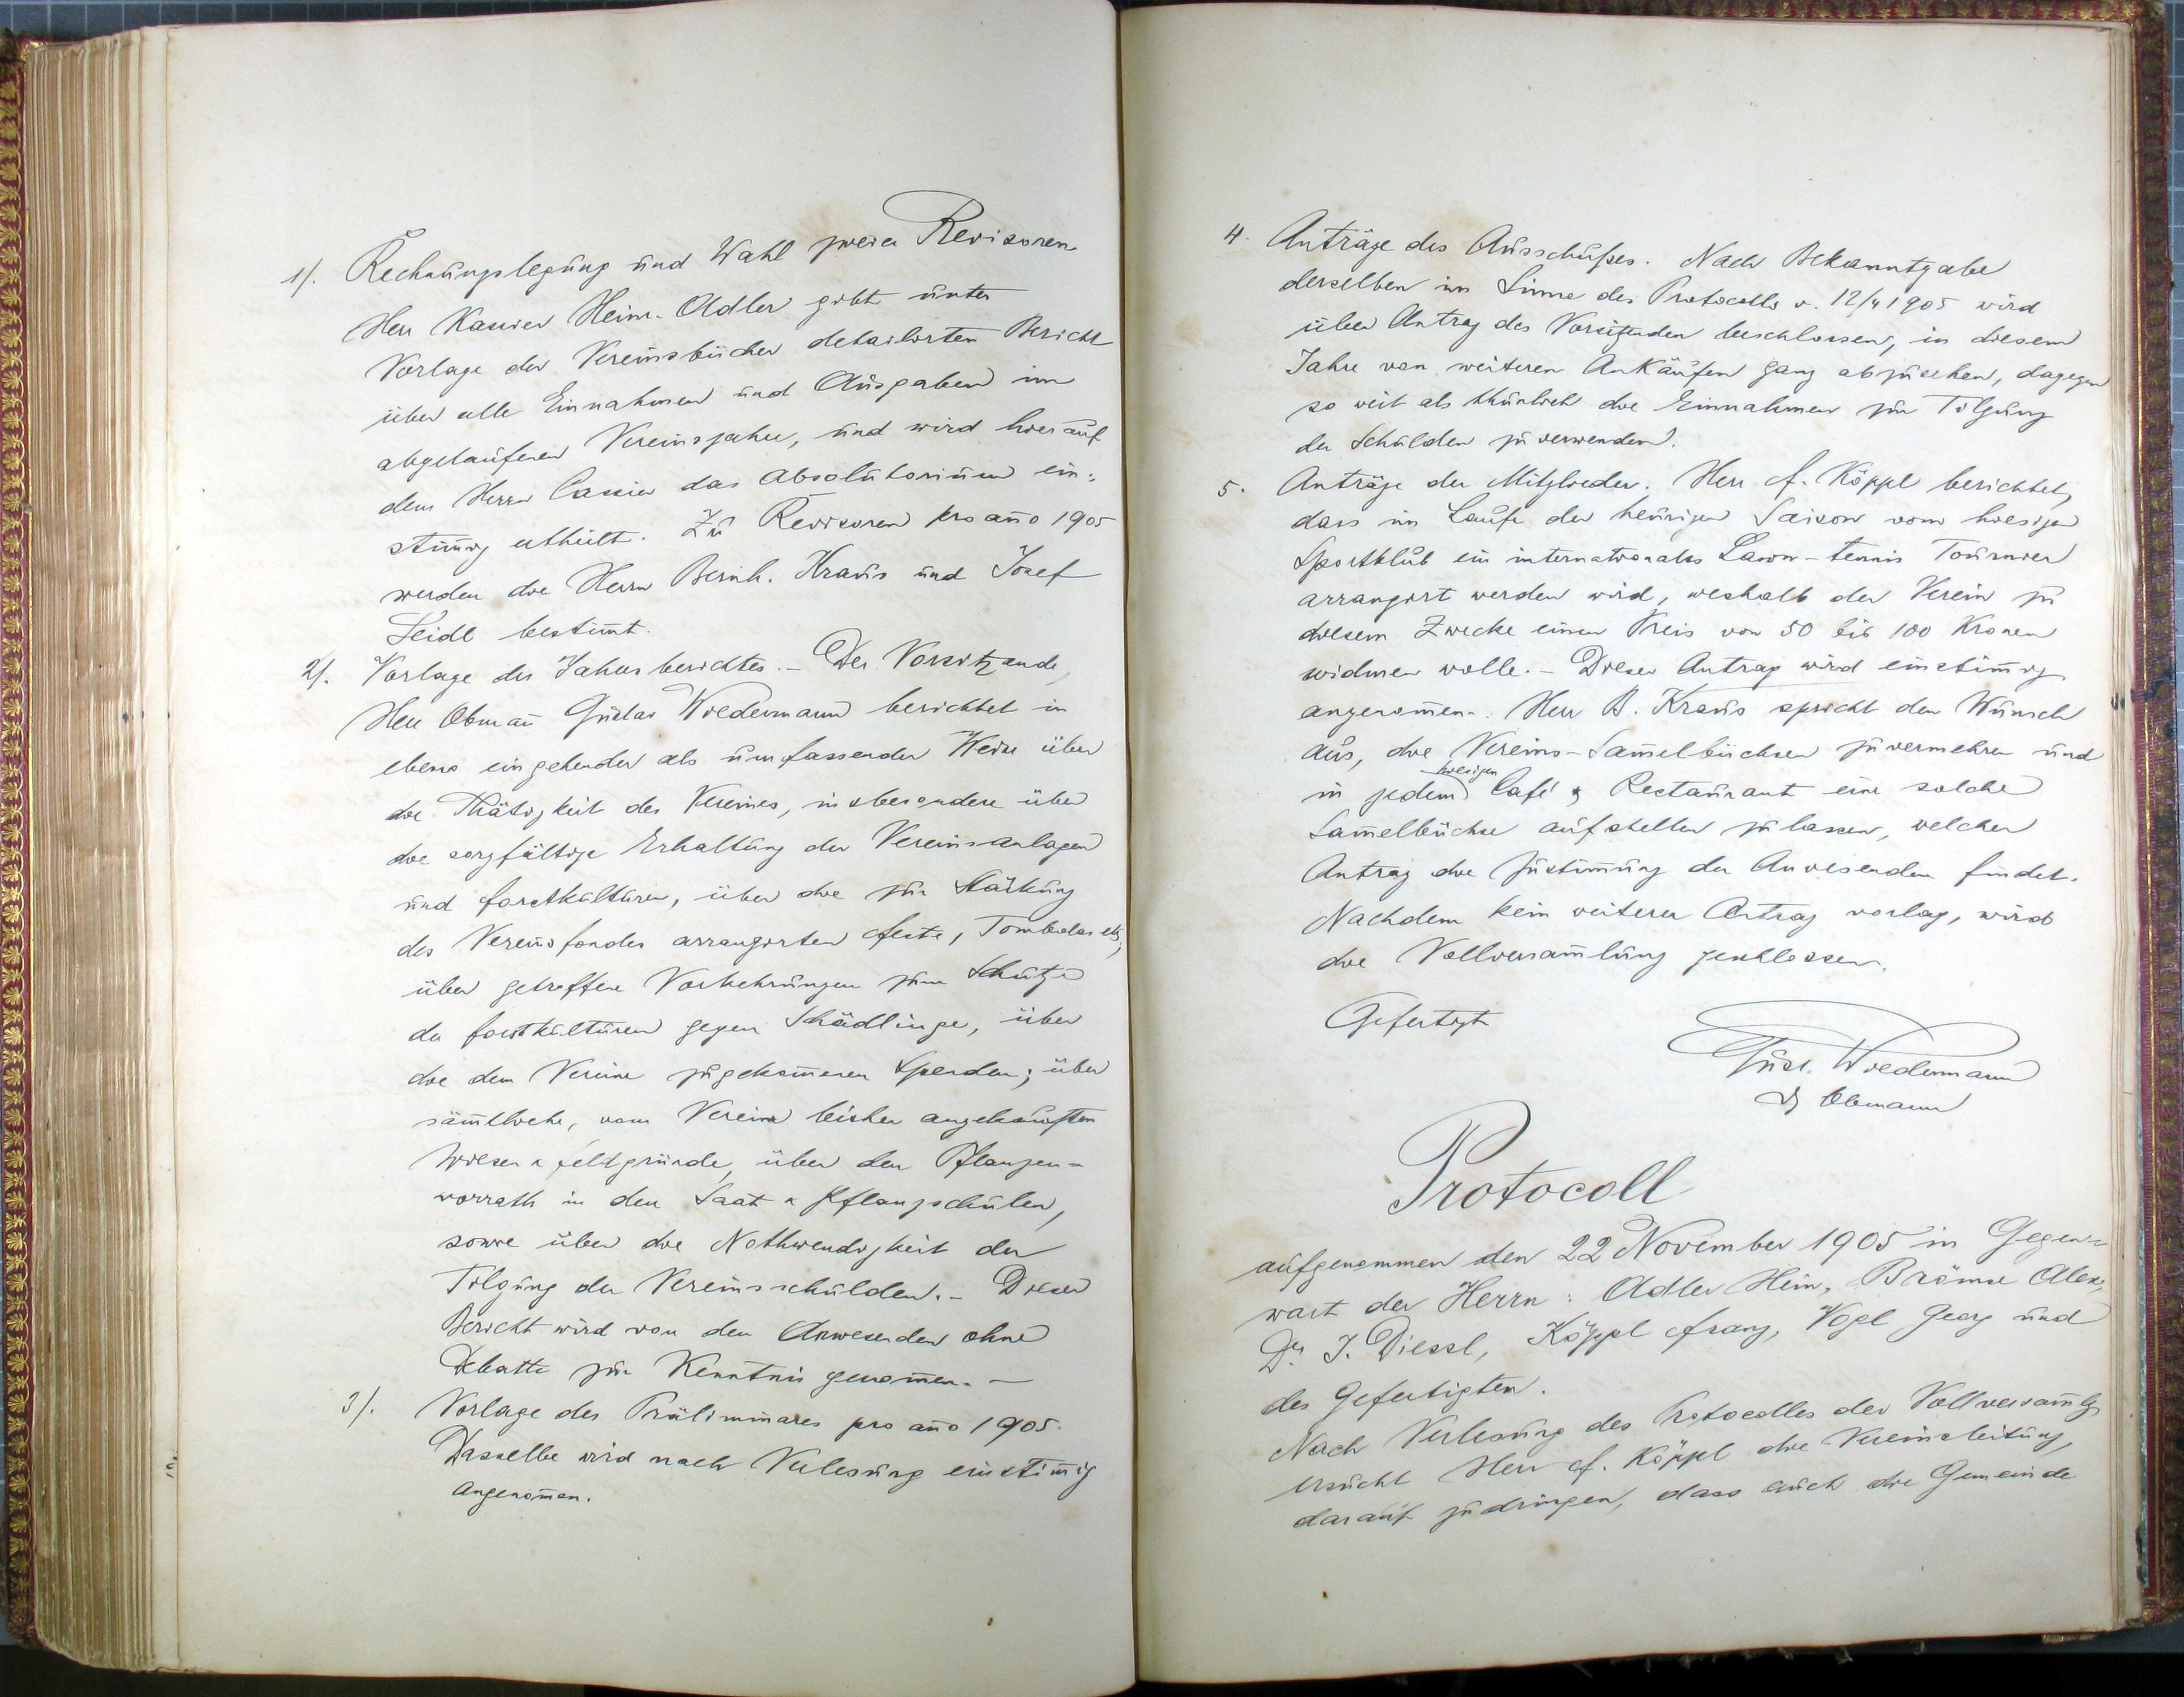 1/. Rechnungslegung und Wahl zweier Revisoren
Herr Kassier Heinr. Adler gibt unter
Vorlage der Vereinsbücher detailirten Bericht
über alle Einnahmen und Ausgaben im
abgelaufenen Vereinsjahre, und wird hierauf
dem Herrn Cassier das Absolutorium ein-
stim̄ig ertheilt. Zu Revisoren pro an̄o 1905
werden die Herrn Bernh. Kraus und Josef
Seidl bestim̄t.
2/. Vorlage des Jahresberichtes. – Der Vorsitzende,
Herr Obman̄ Gustav Wiedermann berichtet in
ebenso eingehender als umfassender Weise über
die Thätigkeit des Vereines, insbesondere über
die sorgfältige Erhaltung der Vereinsanlagen
und Forstkulturen, über die zur Stärkung
des Vereinsfondes arrangirten Feste, Tombolas etc,
über getroffene Vorkehrungen zum Schutze
der Forstkulturen gegen Schädlinge, über
die dem Vereine zugekom̄enen Spenden; über
säm̄tliche, vom Vereine bisher angekauften
Wiesen & Feldgründe, über den Pflanzen-
vorrath in den Saat & Pflanzschulen,
sowie über die Nothwendigkeit der
Tilgung der Vereinsschulden. – Dieser
Bericht wird von den Anwesenden ohne
Debatte zur Kenntnis genom̄en. –
3/. Vorlage des Präliminares pro an̄o 1905.
Dasselbe wird nach Verlesung einstim̄ig
angenom̄en.
4. Anträge des Ausschußes. Nach Bekanntgabe
derselben im Sinne des Protocolls v. 12/4 1905 wird
über Antrag des Vorsitzenden beschlossen, in diesem
Jahre von weiteren Ankäufen ganz abzusehen, dagegen
so weit als thunlich die Einnahmen zur Tilgung
der Schulden zu verwenden.
5. Anträge der Mitglieder. Herr F. Köppl berichtet,
dass im Laufe der heurigen Saison vom hiesigen
Sportklub ein internationales Lawn-tennis Tournier
arrangirt werden wird, weshalb der Verein zu
diesem Zwecke einen Preis von 50 bis 100 Kronen
widmen wolle. – Dieser Antrag wird einstim̄ig
angenom̄en. Herr B. Kraus spricht den Wunsch
aus, die Vereins-Sam̄elbüchsen zu vermehren und
in jedem hiesigen Café & Restaurant eine solche
Sam̄elbüchse aufstellen zu lassen, welcher
Antrag die Zustim̄ung der Anwesenden findet.
Nachdem kein weiterer Antrag vorlag, wird
die Vollversam̄lung geschlossen.
Gefertigt
Gust. Wiedermann
Obmann
Protocoll
aufgenommen den 22 November 1905 in Gegen-
wart der Herrn: Adler Hein, Brömse Alex,
Dr. J. Diessl, Köppl Franz, Vogl Georg und
des Gefertigten.
Nach Verlesung des Protocolles der Vollversam̄lg
ersucht Herr F. Köppl die Vereinsleitung,
darauf zu dringen, dass auch die Gemeinde